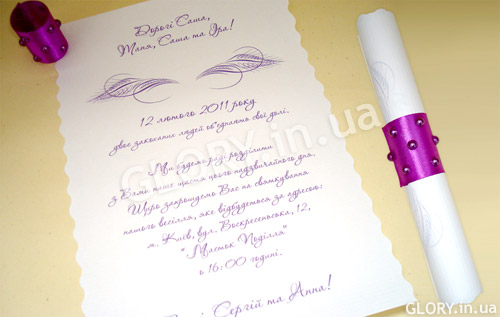 Дорогі Саша,
Таня, Саша та Іра!
12 лютого 2011 року
двоє закоханих людей об'єднають свої долі.
Ми будемо раді розділити
з Вами наше щастя цього надзвичайного дня.
Щиро запрошуємо Вас на святкування
нашого весілля, яке відбудеться за адресою:
м. Київ, вул. Воскресенська, 12,
"Маєток Поділля"
о 16:00 годині.
Сергій та Анна!
GLORY.in.ua
GLORY.in.ua